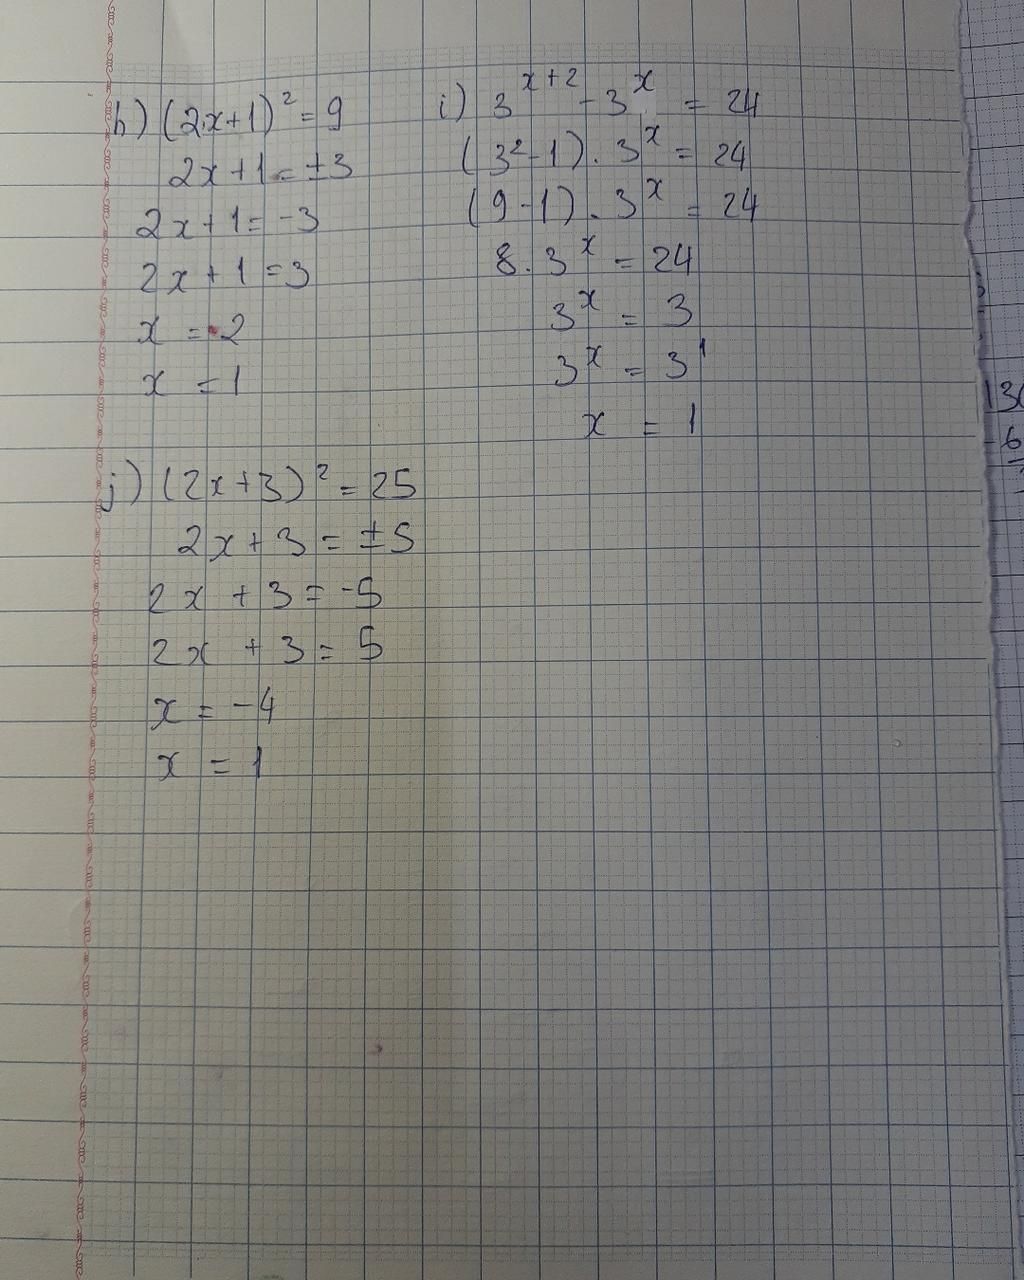 h) (2x+1)² = 9
2x+1 = ±3
2x+1 = -3
2x+1 = 3
x = -2
x = 1
i) 3^{x+2} - 3^x = 24
(3²-1) . 3^x = 24
(9-1) . 3^x = 24
8 . 3^x = 24
3^x = 3
3^x = 3¹
x = 1
j) (2x+3)² = 25
2x+3 = ±5
2x + 3 = -5
2x + 3 = 5
x = -4
x = 1